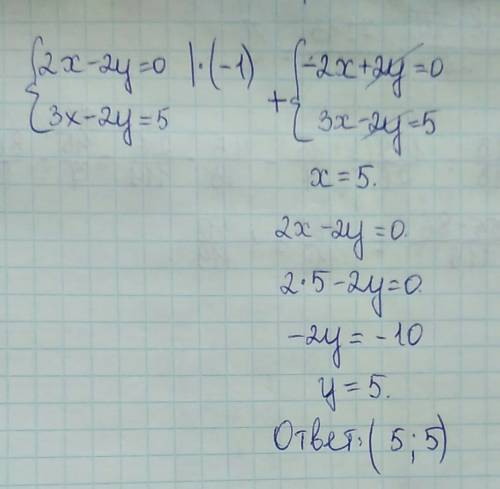 {2x-2y=0 |·(-1) {-2x+2y=0
{3x-2y=5 + {3x-2y=5
x=5.
2x-2y=0.
2·5-2y=0.
-2y=-10
y=5.
Ответ: (5;5)